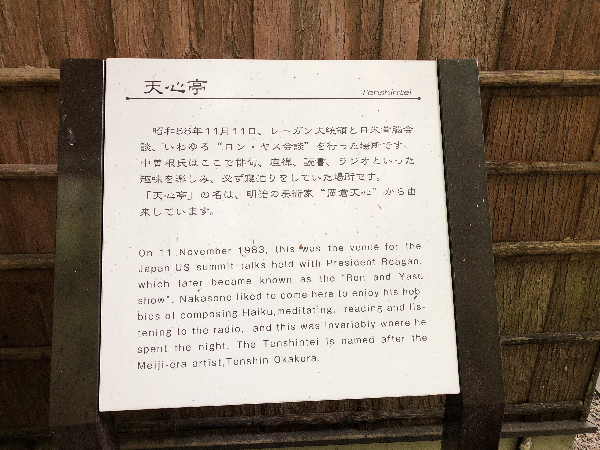 天心亭
Tenshintei
昭和58年11月11日、レーガン大統領と日米首脳会
談、いわゆる“ロン・ヤス会談”を行った場所です。
中曽根氏はここで俳句、座禅、読書、ラジオといった
趣味を楽しみ、必ず寝泊りをしていた場所です。
「天心亭」の名は、明治の美術家“岡倉天心”から由
来しています。
On 11 November 1983, this was the venue for the
Japan US summit talks held with President Reagan,
which later became known as the "Ron and Yasu
show". Nakasone liked to come here to enjoy his hob
bies of composing Haiku,meditating, reading and lis-
tening to the radio, and this was invariably where he
spent the night. The Tenshintei is named after the
Meiji-era artist,Tenshin Okakura.